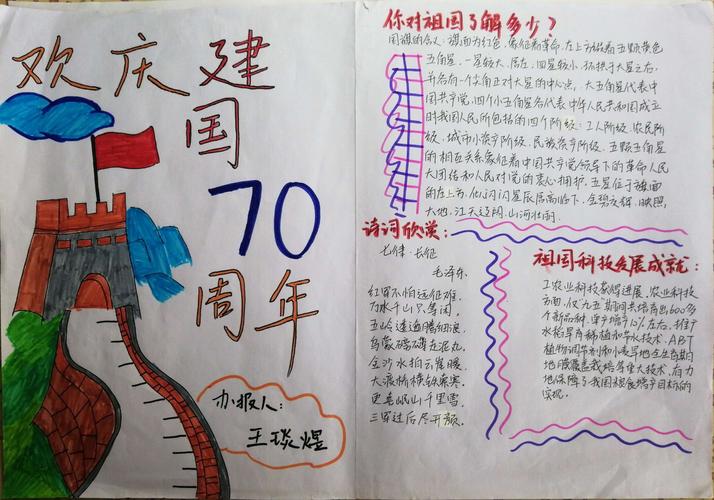 欢庆建
国
70
周年
办报人：
王琰煜
你对祖国了解多少？
国旗的含义：旗面为红色，象征着革命，左上方缀着五颗黄色
五角星，一星较大，居左，四星较小，环拱于大星之右，
并各有一个角正对大星的中心点，大五角星代表中
国共产党，四个小五角星各代表中华人民共和国成立
时我国人民所包括的四个阶级：工人阶级、农民阶
级，城市小资产阶级、民族资产阶级。五颗五角星
的相互关系象征着中国共产党领导下的革命人民
大团结和人民对党的衷心拥护，五星位于旗面
的左上方，似闪闪星辰居高临下，金碧交辉，映照
大地，江天辽阔，山河壮丽。
诗词欣赏：
七律·长征
毛泽东
红军不怕远征难，
万水千山只等闲。
五岭逶迤腾细浪，
乌蒙磅礴走泥丸。
金沙水拍云崖暖，
大渡桥横铁索寒。
更喜岷山千里雪，
三军过后尽开颜。
祖国科技发展成就：
工农业科技蓬勃进展，农业科技
方面，仅九五期间共培育出600多
个新品种，单产增产12%左右，推广
水稻旱育稀植和节水技术，ABT
植物调节剂和小麦旱地全生育期
地膜覆盖栽培等重大技术，有力
地保障了我国粮食增产目标的
实现。